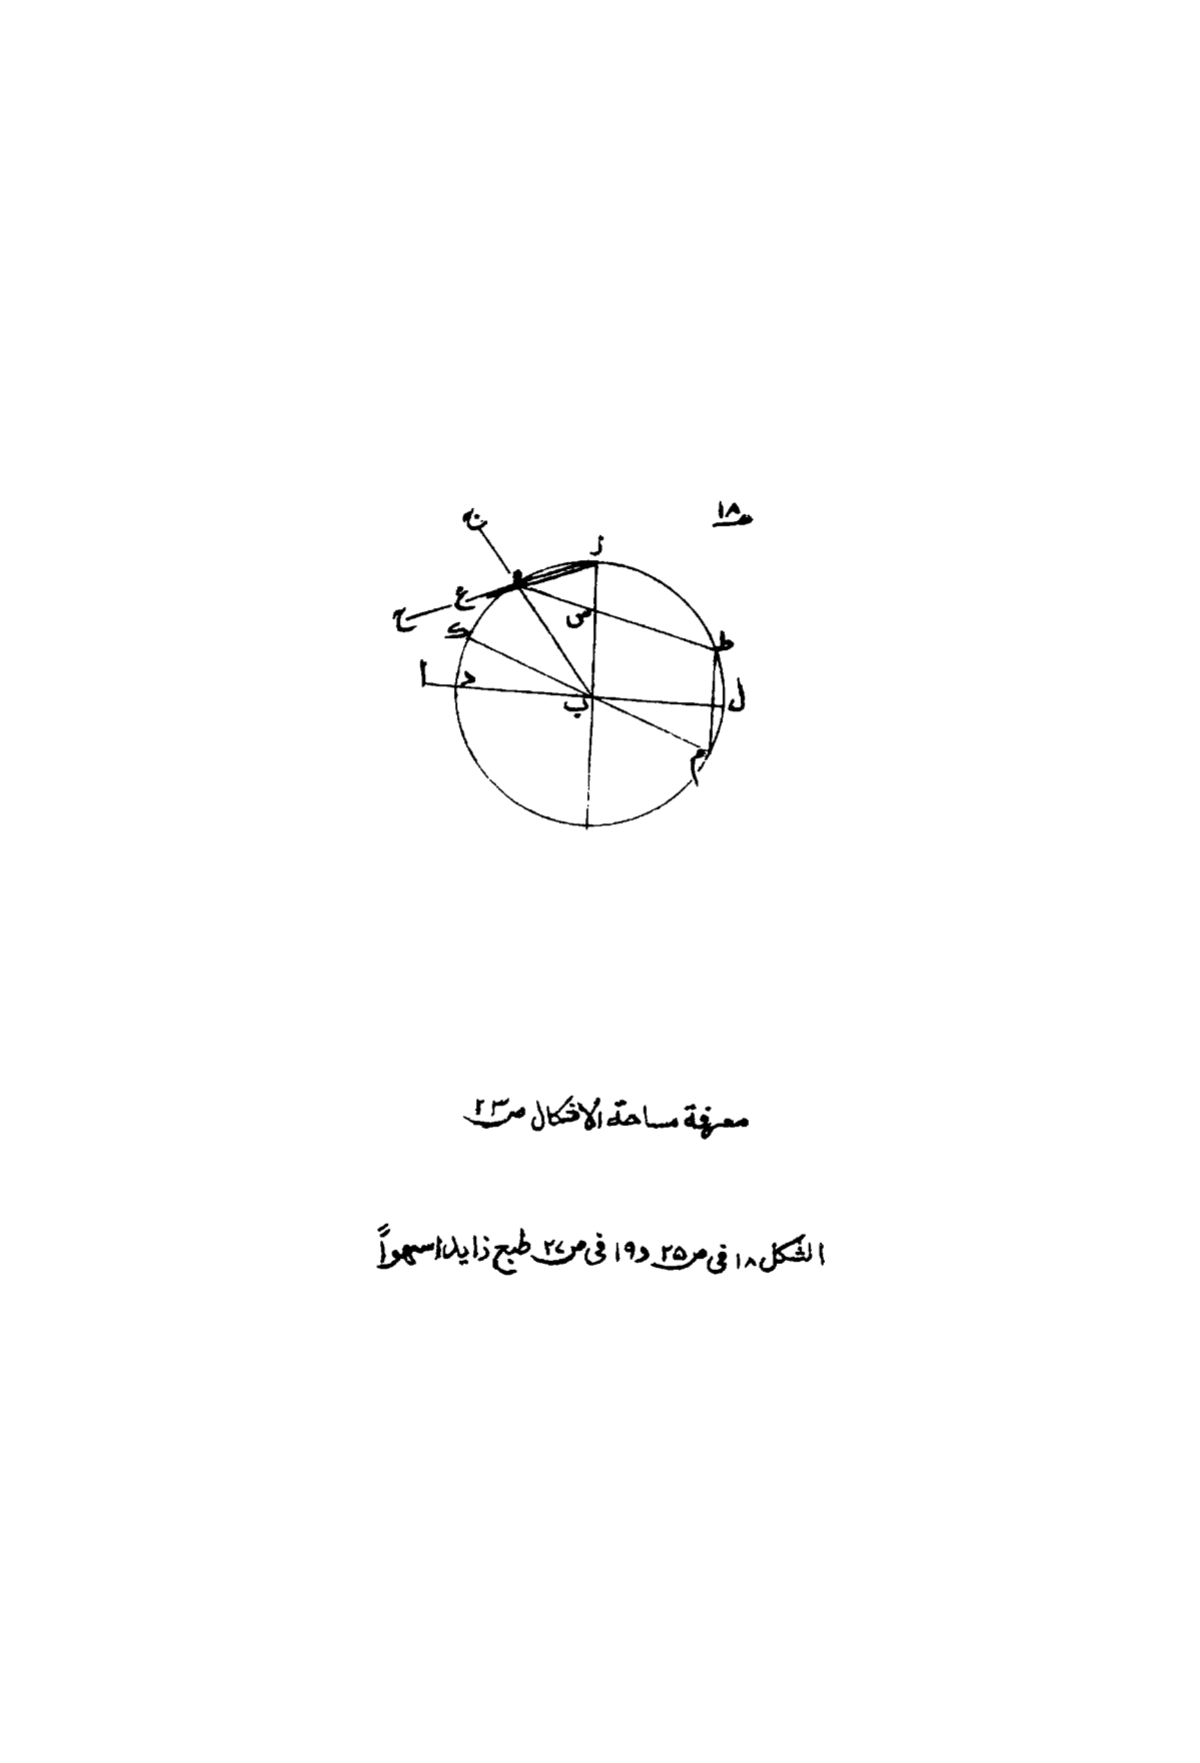 ١٨
ز
نه
ه
ع
ح
ص
ط
ك
ا
د
ب
ل
م
معرفة مساحة الاشكال ص ٢٣
الشكل ١٨ فى ص ٢٥ و ١٩ فى ص ٢٧ طبع زايدا سهواً